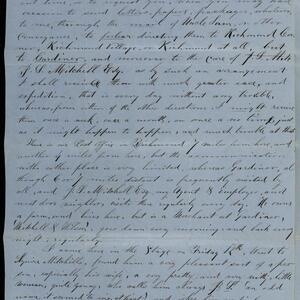 to me, through the ... of Uncle Sam, or other
conveyance, to forbear directing them to Richmond Cor
ner, Richmond Village, or Richmond at all, but
to Gardiner, and moreover to the care of J. P.
J. P. Mitchell Esq. as by such an arrangement
I shall receive them with much greater ease, and
expedition, that is every day without any trouble,
whereas from either of the other directions I might receive
them once a week, once a month, or once a six times, just
as it might happen to happen, and much trouble at that.
There is one Post Office in Richmond 7 miles from here, and
another 4 miles from here, but the accommodation, in
either other place is very limited, whereas Gardiner, al
though 6 miles from the district is frequently visited by
all, and J. P. Mitchell Esq. my Agent & employer, and
next door neighbor, visits there regularly every day. He owns
a farm, and lives here, but is a Merchant at Gardiner,
Mitchell & Wilson, goes down every morning, and back every
night, regularly.
I came here in the Stage, Friday 10th. Went to
Squire Mitchells, found him a very pleasant sort of per
son, especially his wife, a very pretty, and very little
woman, quite young, who calls him always J. P. (an odd
name, it seemed to me, at first)